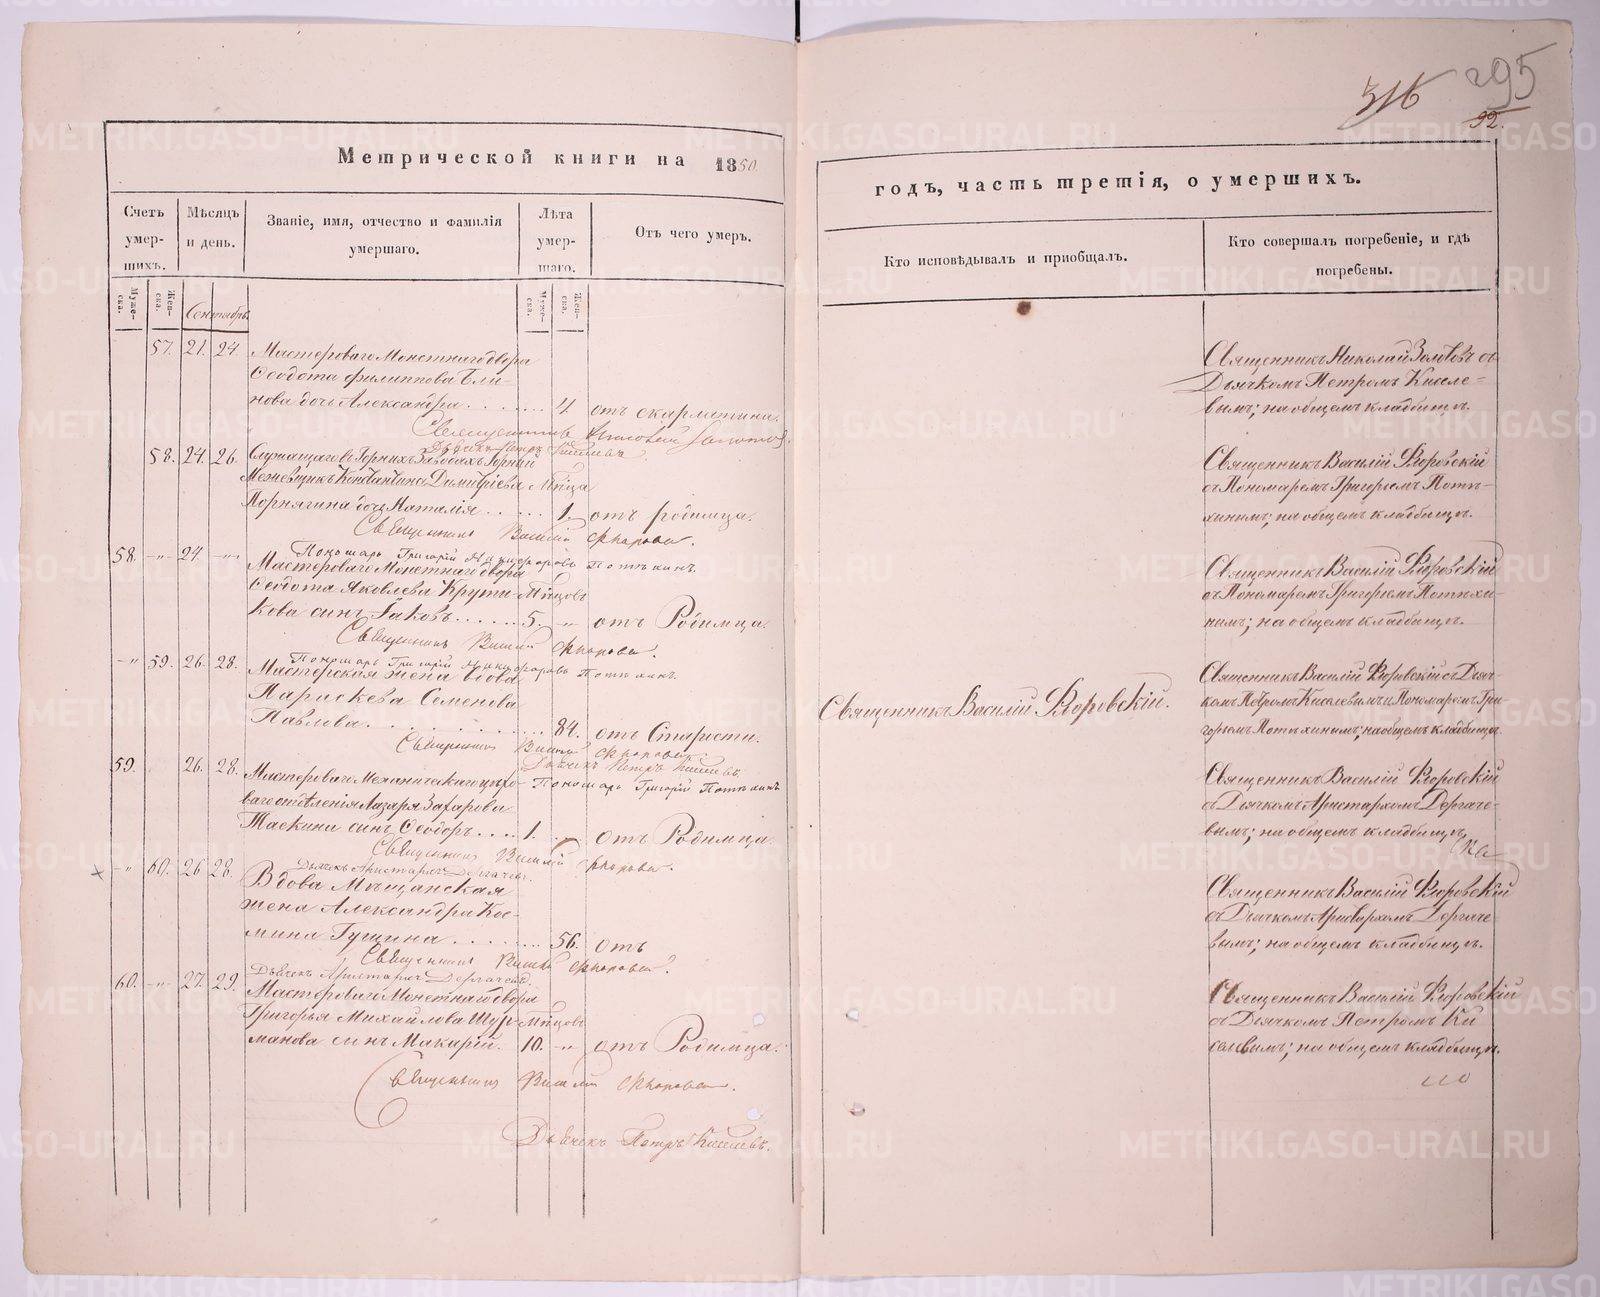 316
295
92.
Метрической книги на 1850.
годъ, часть третія, о умершихъ.
Счетъ умершихъ.
Мѣсяцъ и день.
Званіе, имя, отчество и фамилія умершаго.
Лѣта умершаго.
Отъ чего умеръ.
Кто исповѣдывалъ и пріобщалъ.
Кто совершалъ погребеніе, и гдѣ погребены.
Сентябрь
57. 21. 24. Мастероваго Монетнаго двора
Ѳеодота Филиппова
нова дочь Александра 4 отъ скарлатины.
Священникъ Николай
Дьячекъ Петръ Киселевъ
Священникъ Николай Золотовъ съ
Дьячкомъ Петромъ Киселе-
вымъ; на общемъ кладбищѣ.
58. 24. 26. Служащаго въ Горныхъ Заводахъ Горный
Межевщикъ Константина Димитріева Мѣсяца
дочь Наталія 1. отъ родимца.
Священникъ Василій Флоровскій.
Пономарь Григорій Никифоровъ Потѣхинъ.
Священникъ Василій Флоровскій
съ Пономаремъ Григорьемъ Потѣ-
хинымъ; на общемъ кладбищѣ.
58. -"- 24. -"- Мастероваго Монетнаго двора
Ѳеодота Яковлева Крути- Мѣсяцовъ
кова сынъ Іаковъ 5. -"- отъ Родимца.
Священникъ Василій Флоровскій.
Пономарь Григорій Никифоровъ Потѣхинъ.
Священникъ Василій Флоровскій
съ Пономаремъ Григорьемъ Потѣхи-
нымъ; на общемъ кладбищѣ.
-"- 59. 26. 28. Мастерская жена вдова
Параскева Семенова
Павлова 84. отъ Старости.
Священникъ Василій Флоровскій
Дьячекъ Петръ Киселевъ
Пономарь Григорій Потѣхинъ
Священникъ Василій Флоровскій.
Священникъ Василій Флоровскій съ Дьяч-
комъ Петромъ Киселевымъ и Пономаремъ Гри-
горьемъ Потѣхинымъ; на общемъ кладбищѣ.
59. 26. 28. Мастероваго Механическаго цехо-
ваго отдѣленія Лазаря Захарова
Таскина сынъ Ѳеодоръ 1. отъ Родимца.
Священникъ Василій Флоровскій.
Дьячекъ Аристархъ Дергачевъ.
Священникъ Василій Флоровскій
съ Дьячкомъ Аристархомъ Дергаче-
вымъ; на общемъ кладбищѣ.
-"- 60. 26 28. Вдова Мѣщанская
жена Александра Кос-
мина Гущина 56. отъ
Священникъ Василій Флоровскій.
Дьячекъ Аристархъ Дергачевъ.
Священникъ Василій Флоровскій
съ Дьячкомъ Аристархомъ Дергаче-
вымъ; на общемъ кладбищѣ.
60. -"- 27. 29. Мастероваго Монетнаго двора
Григорья Михайлова Шур- Мѣсяцовъ
манова сынъ Макарій. 10. -"- отъ Родимца.
Священникъ Василій Флоровскій.
Дьячекъ Петръ Киселевъ.
Священникъ Василій Флоровскій
съ Дьячкомъ Петромъ Ки
селевымъ; на общемъ кладбищѣ.
METRIKI.GASO-URAL.RU